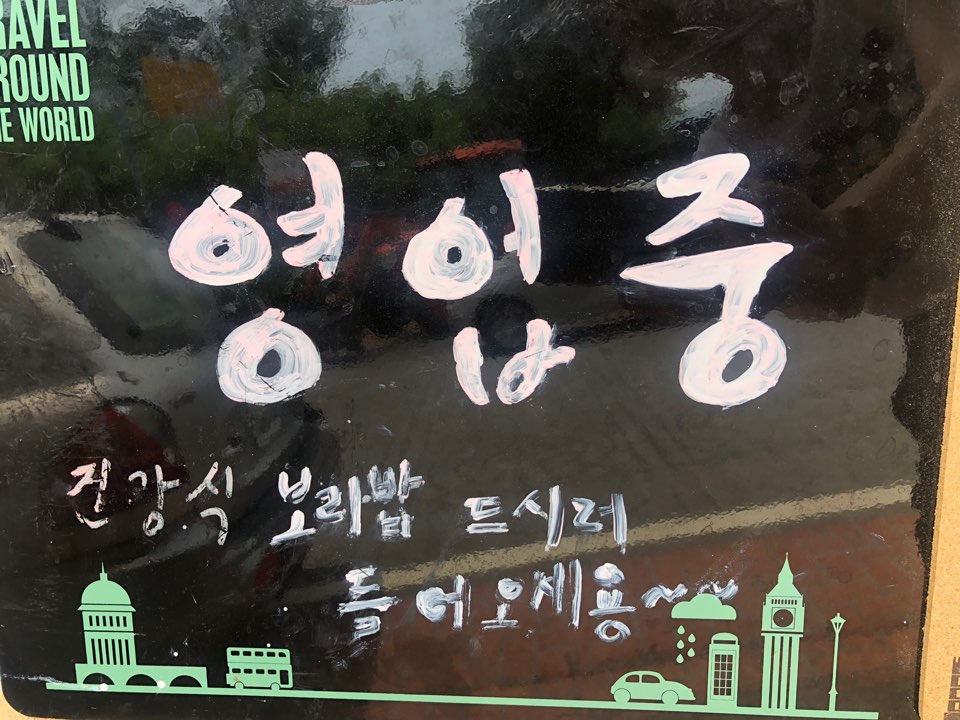 RAVEL
ROUND
E WORLD
영업중
건강식 보리밥 드시러
들어오세용~~